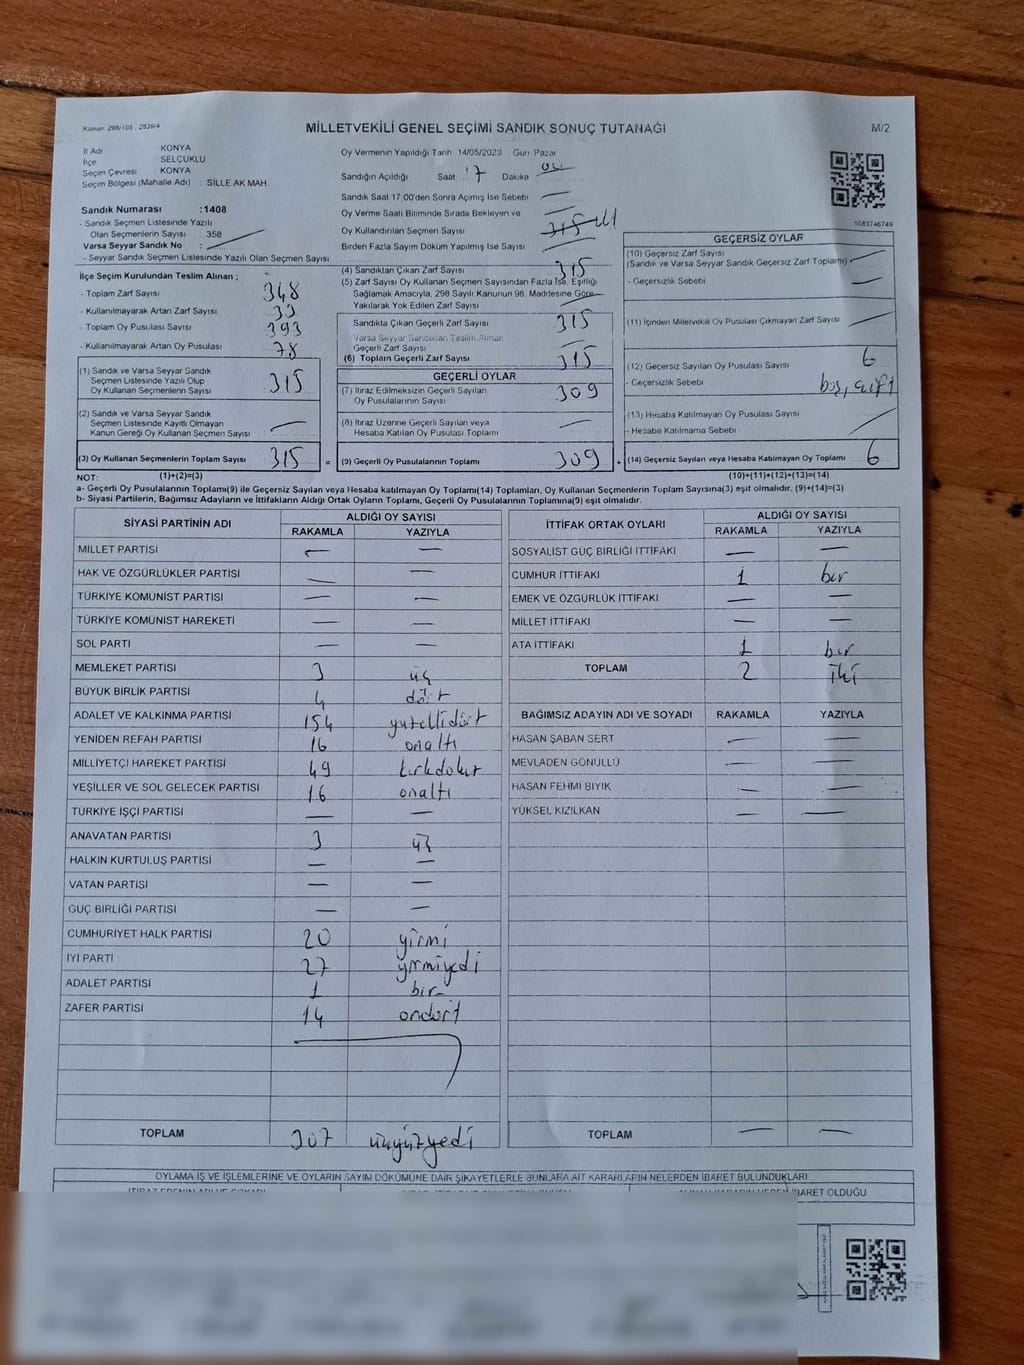 Kanun: 298/105 ; 2839/4
MİLLETVEKİLİ GENEL SEÇİMİ SANDIK SONUÇ TUTANAĞI
M/2
İl Adı KONYA
İlçe SELÇUKLU
Seçim Çevresi KONYA
Seçim Bölgesi (Mahalle Adı) : SİLLE AK MAH.
Sandık Numarası :1408
- Sandık Seçmen Listesinde Yazılı
Olan Seçmenlerin Sayısı : 358
Varsa Seyyar Sandık No :
- Seyyar Seçmen Listesinde Yazılı Olan Seçmen Sayısı
Oy Vermenin Yapıldığı Tarih 14/05/2023 Gün Pazar
Sandığın Açıldığı Saat 17 Dakika 00
Sandık Saat 17.00'den Sonra Açımış İse Sebebi
Oy Verme Saati Bitiminde Sırada Bekleyen ve
Oy Kullandırılan Seçmen Sayısı 315
Birden Fazla Sayım Döküm Yapılmış İse Sayısı
1083746749
İlçe Seçim Kurulundan Teslim Alınan ;
- Toplam Zarf Sayısı 348
- Kullanılmayarak Artan Zarf Sayısı 33
- Toplam Oy Pusulası Sayısı 393
- Kullanılmayarak Artan Oy Pusulası 78
(1) Sandık ve Varsa Seyyar Sandık
Seçmen Listesinde Yazılı Olup
Oy Kullanan Seçmenlerin Sayısı 315
(2) Sandık ve Varsa Seyyar Sandık
Seçmen Listesinde Kayıtlı Olmayan
Kanun Gereği Oy Kullanan Seçmen Sayısı
(3) Oy Kullanan Seçmenlerin Toplam Sayısı 315 =
(4) Sandıktan Çıkan Zarf Sayısı 315
(5) Zarf Sayısı Oy Kullanan Seçmen Sayısından Fazla İse, Eşitliği
Sağlamak Amacıyla, 298 Sayılı Kanunun 98. Maddesine Göre
Yakılarak Yok Edilen Zarf Sayısı
Sandıkta Çıkan Geçerli Zarf Sayısı 315
Varsa Seyyar Sandıktan Teslim Alınan
Geçerli Zarf Sayısı
(6) Toplam Geçerli Zarf Sayısı 315
GEÇERLİ OYLAR
(7) İtiraz Edilmeksizin Geçerli Sayılan
Oy Pusulalarının Sayısı 309
(8) İtiraz Üzerine Geçerli Sayılan veya
Hesaba Katılan Oy Pusulası Toplamı
(9) Geçerli Oy Pusulalarının Toplamı 309 +
GEÇERSİZ OYLAR
(10) Geçersiz Zarf Sayısı
(Sandık ve Varsa Seyyar Sandık Geçersiz Zarf Toplamı)
- Geçersizlik Sebebi
(11) İçinden Milletvekili Oy Pusulası Çıkmayan Zarf Sayısı
(12) Geçersiz Sayılan Oy Pusulası Sayısı 6
- Geçersizlik Sebebi boş, çift
(13) Hesaba Katılmayan Oy Pusulası Sayısı
- Hesaba Katılmama Sebebi
(14) Geçersiz Sayılan veya Hesaba Katılmayan Oy Toplamı 6
NOT: (1)+(2)=(3) (10)+(11)+(12)+(13)=(14)
a- Geçerli Oy Pusulaları Toplamı(9) ile Geçersiz Sayılan veya Hesaba katılmayan Oy Toplamı(14) Toplamları, Oy Kullanan Seçmenlerin Toplam Sayısına(3) eşit olmalıdır. (9)+(14)=(3)
b- Siyasi Partilerin, Bağımsız Adayların ve İttifakların Aldığı Ortak Oyların Toplamı, Geçerli Oy Pusulalarının Toplamına(9) eşit olmalıdır.
SİYASİ PARTİNİN ADI ALDIĞI OY SAYISI
RAKAMLA YAZIYLA
MİLLET PARTİSİ
HAK VE ÖZGÜRLÜKLER PARTİSİ
TÜRKİYE KOMÜNİST PARTİSİ
TÜRKİYE KOMÜNİST HAREKETİ
SOL PARTİ
MEMLEKET PARTİSİ 3 üç
BÜYÜK BİRLİK PARTİSİ 4 dört
ADALET VE KALKINMA PARTİSİ 154 yüzellidört
YENİDEN REFAH PARTİSİ 16 onaltı
MİLLİYETÇİ HAREKET PARTİSİ 49 kırkdokuz
YEŞİLLER VE SOL GELECEK PARTİSİ 16 onaltı
TÜRKİYE İŞÇİ PARTİSİ
ANAVATAN PARTİSİ 3 üç
HALKIN KURTULUŞ PARTİSİ
VATAN PARTİSİ
GÜÇ BİRLİĞİ PARTİSİ
CUMHURİYET HALK PARTİSİ 20 yirmi
İYİ PARTİ 27 yirmiyedi
ADALET PARTİSİ 1 bir
ZAFER PARTİSİ 14 ondört
TOPLAM 307 üçyüzyedi
İTTİFAK ORTAK OYLARI ALDIĞI OY SAYISI
RAKAMLA YAZIYLA
SOSYALİST GÜÇ BİRLİĞİ İTTİFAKI
CUMHUR İTTİFAKI 1 bir
EMEK VE ÖZGÜRLÜK İTTİFAKI
MİLLET İTTİFAKI
ATA İTTİFAKI 1 bir
TOPLAM 2 iki
BAĞIMSIZ ADAYIN ADI VE SOYADI RAKAMLA YAZIYLA
HASAN ŞABAN SERT
MEVLADEN GÖNÜLLÜ
HASAN FEHMİ BIYIK
YÜKSEL KIZILKAN
TOPLAM
OYLAMA İŞ VE İŞLEMLERİNE VE OYLARIN SAYIM DÖKÜMÜNE DAİR ŞİKAYETLERLE BUNLARA AİT KARARLARIN NELERDEN İBARET BULUNDUKLARI
İBARET OLDUĞU